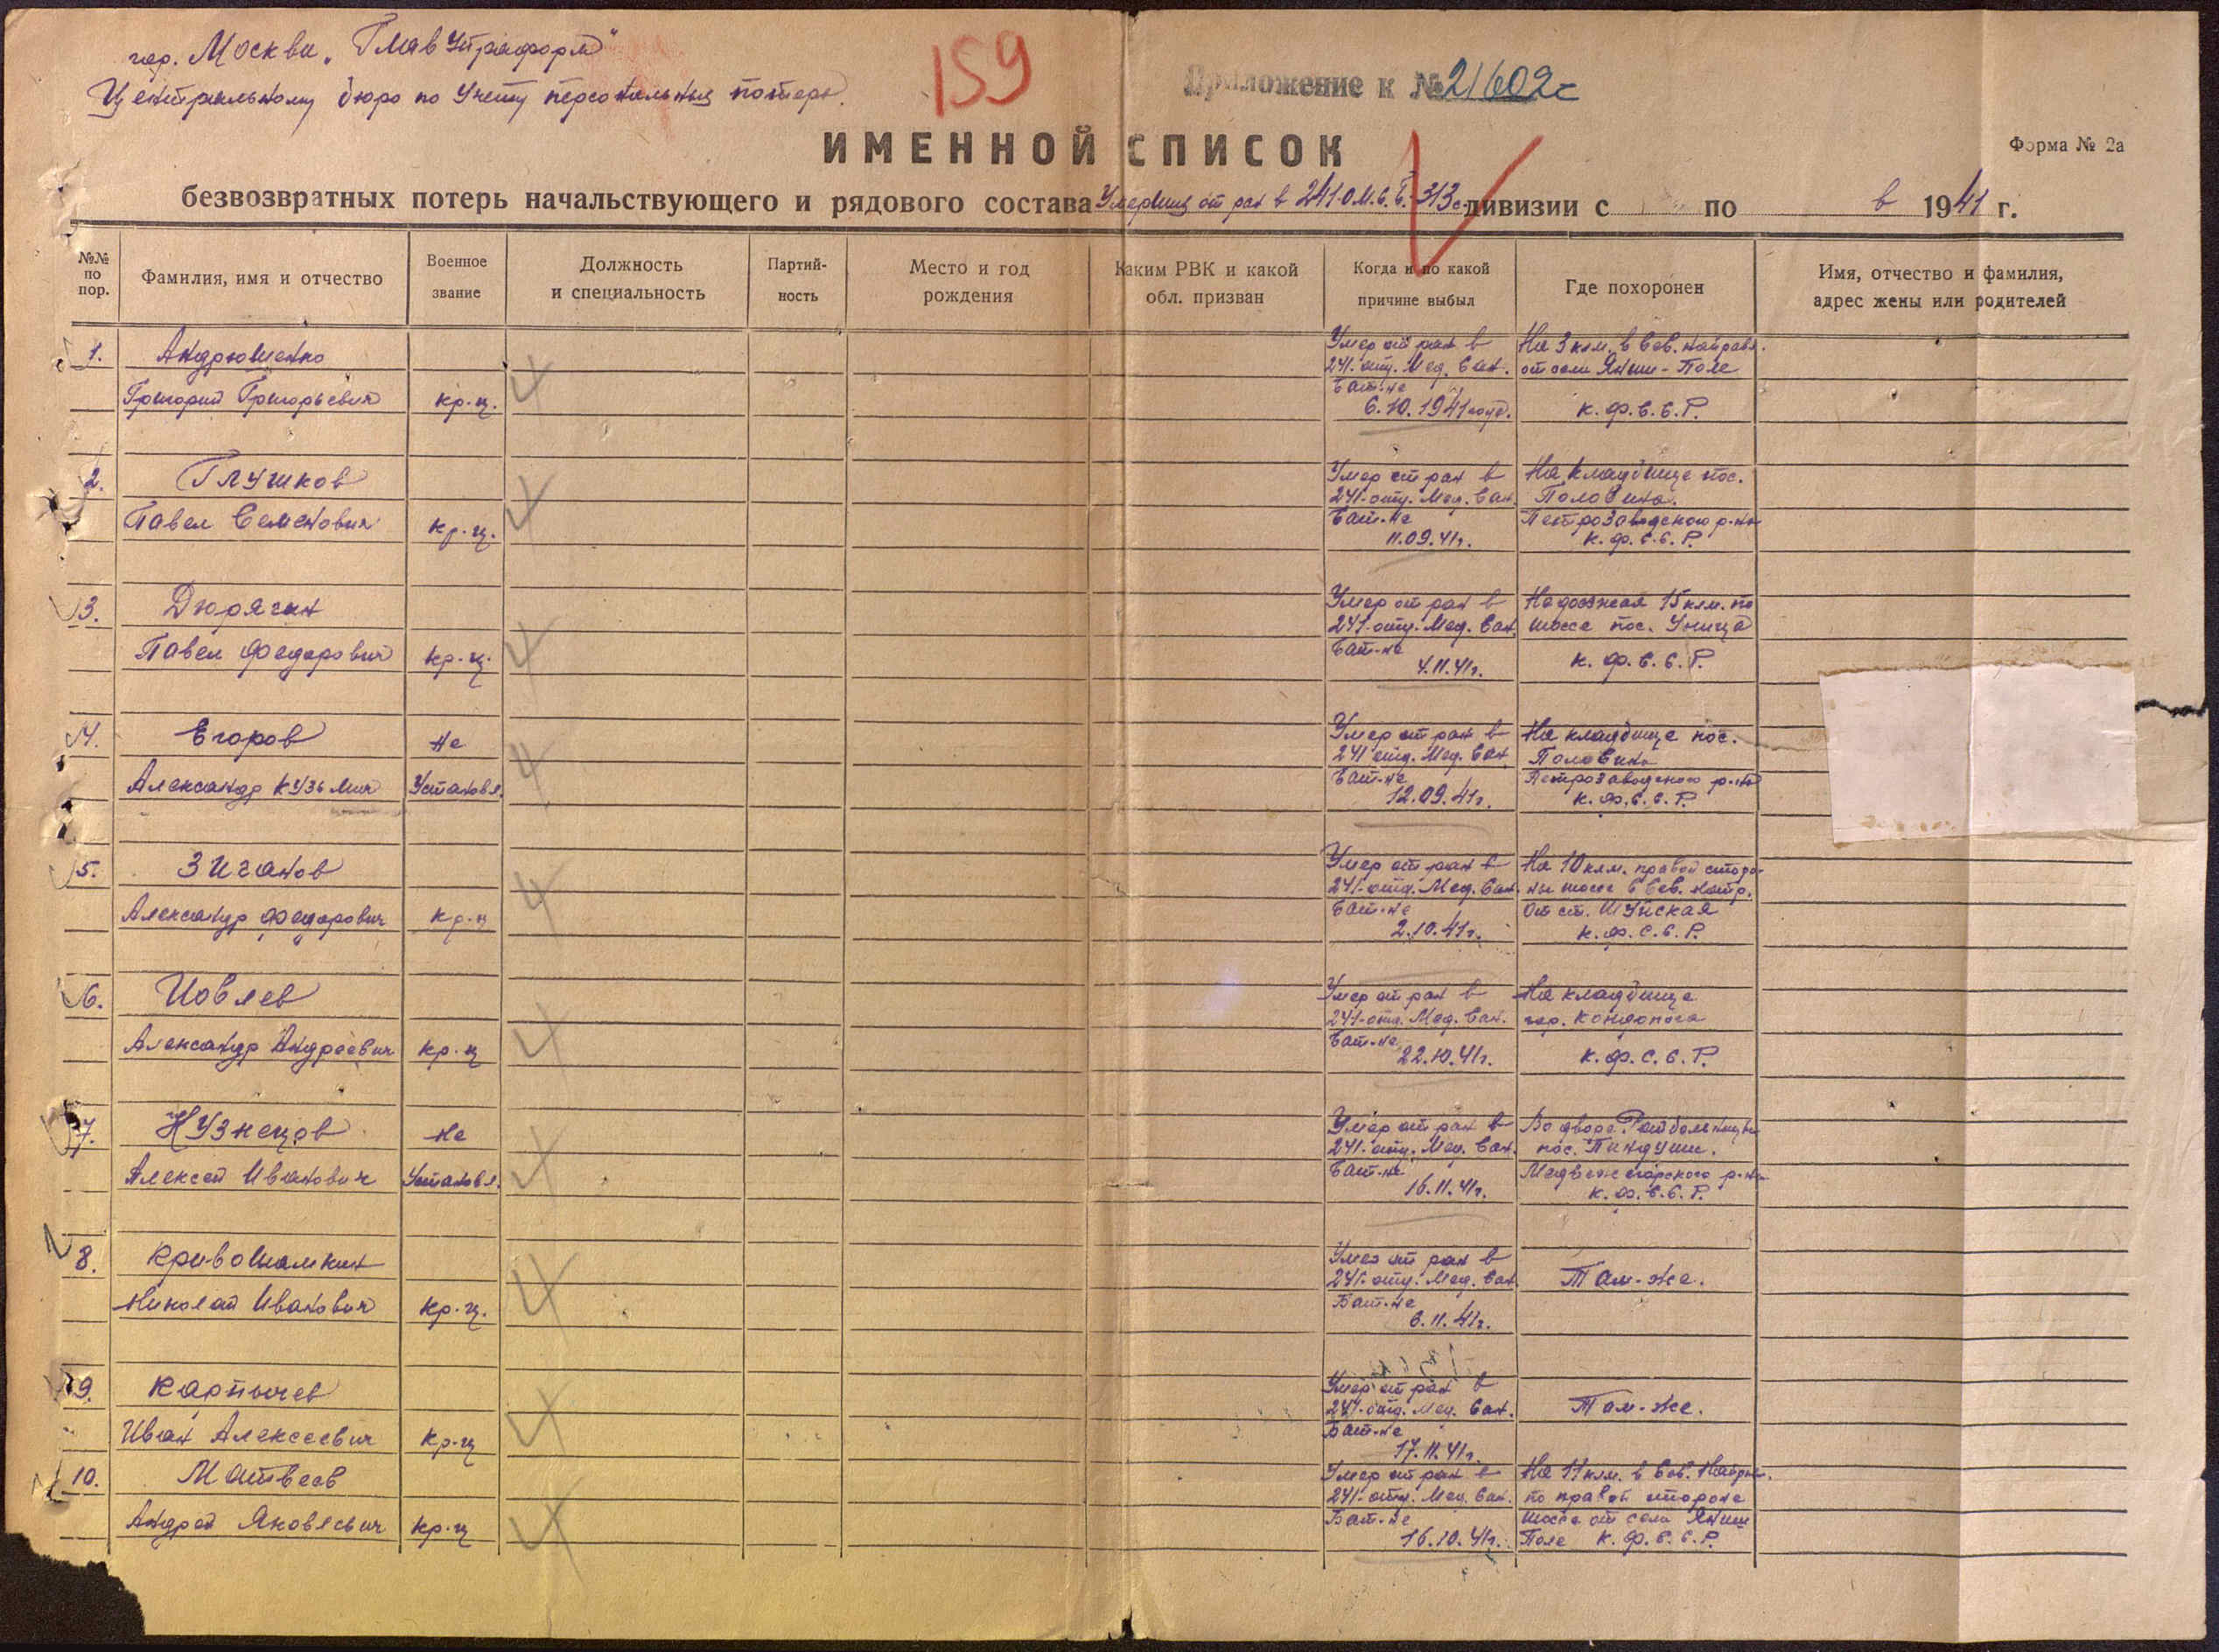 гор. Москва. "Главупраформ"
Центральному бюро по учету персональных потерь.
159
Приложение к №21602с
ИМЕННОЙ СПИСОК
Форма № 2а
безвозвратных потерь начальствующего и рядового состава Умерших от ран в 241 О.М.С.Б. 313 с. дивизии с по в 1941 г.
№№ по пор.
Фамилия, имя и отчество
Военное звание
Должность и специальность
Партийность
Место и год рождения
Каким РВК и какой обл. призван
Когда и по какой причине выбыл
Где похоронен
Имя, отчество и фамилия, адрес жены или родителей
1. Андрюшенко Умер от ран в На 3 клм. в Сев. направл.
241-отд. Мед. Сан. от села Яниш-Поле
Григорий Григорьевич кр-ц. 4 Бат-не
6.10.1941 года. К.Ф.С.С.Р.
2. Глушков Умер от ран в На кладбище пос.
241-отд. Мед. Сан. Половина.
Павел Семенович кр-ц. 4 Бат-не Петрозаводского р-на
11.09.41г. К.Ф.С.С.Р.
3. Дюрягин Умер от ран в Не доезжая 15 клм. по
241-отд. Мед. Сан. шоссе пос. Уница
Павел Федорович кр-ц. 4 Бат-не
4.11.41г. К.Ф.С.С.Р.
4. Егоров Не Умер от ран в На кладбище пос.
241 отд. Мед. Сан. Половина
Александр Кузьмич Установл. 4 Бат-не Петрозаводского р-на
12.09.41г. К.Ф.С.С.Р.
5. Зиганов Умер от ран в На 10 клм. правой сторо-
241-отд. Мед. Сан. ны шоссе в Сев. напр.
Александр Федорович кр-ц 4 Бат-не От ст. Шуйская
2.10.41г. К.Ф.С.С.Р.
6. Иовлев Умер от ран в На кладбище
241-отд. Мед. Сан. гор. Кондопога
Александр Андреевич кр-ц 4 Бат-не
22.10.41г. К.Ф.С.С.Р.
7. Кузнецов Не Умер от ран в Во дворе больницы
241-отд. Мед. Сан. пос. Пиндуши.
Алексей Иванович Установл. 4 Бат-не Медвежегорского р-на
16.11.41г. К.Ф.С.С.Р.
8. Кривошамкин Умер от ран в
241-отд. Мед. Сан. Там-же.
Николай Иванович кр-ц. 4 Бат-не
6.11.41г.
9. Карпычев Умер от ран в
241-отд. Мед. Сан. Там-же.
Иван Алексеевич кр-ц 4 Бат-не
17.11.41г.
10. Матвеев Умер от ран в На 11 клм. в Сев. Направл.
241-отд. Мед. Сан. по правой стороне
Андрей Яковлевич кр-ц 4 Бат-не шоссе от села Яниш
16.10.41г. Поле К.Ф.С.С.Р.